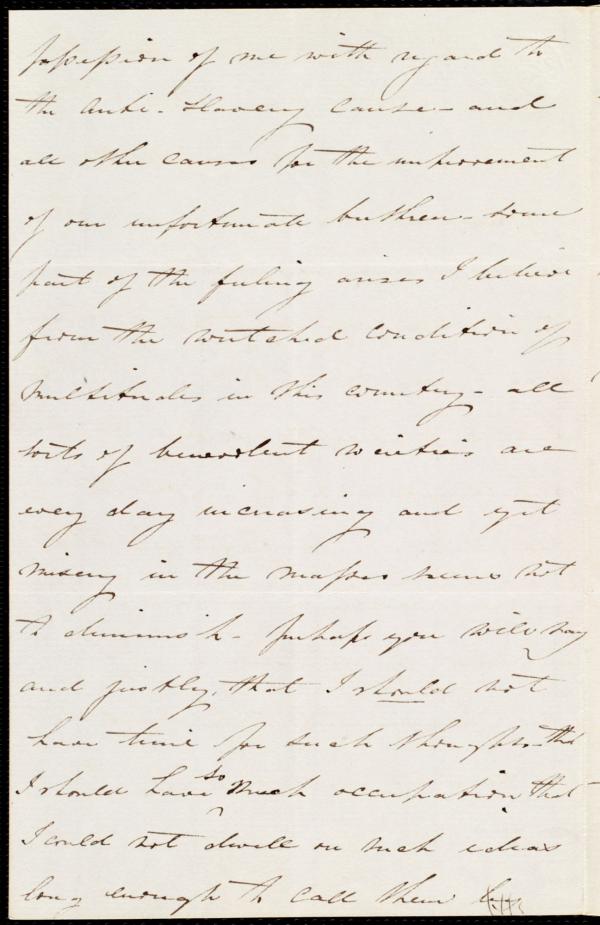 possession of me with regard to
the Anti-Slavery Cause - and
all other causes for the improvement
of our unfortunate brethren - some
part of the feeling arises I believe
from the wretched condition of
multitudes in this country - all
sorts of benevolent societies are
every day increasing and yet
misery in the masses seems not
to diminish - perhaps you will say
and justly, that I should not
have time for such thoughts - that
I should have so much occupation that
I could not dwell on such ideas
long enough to call them